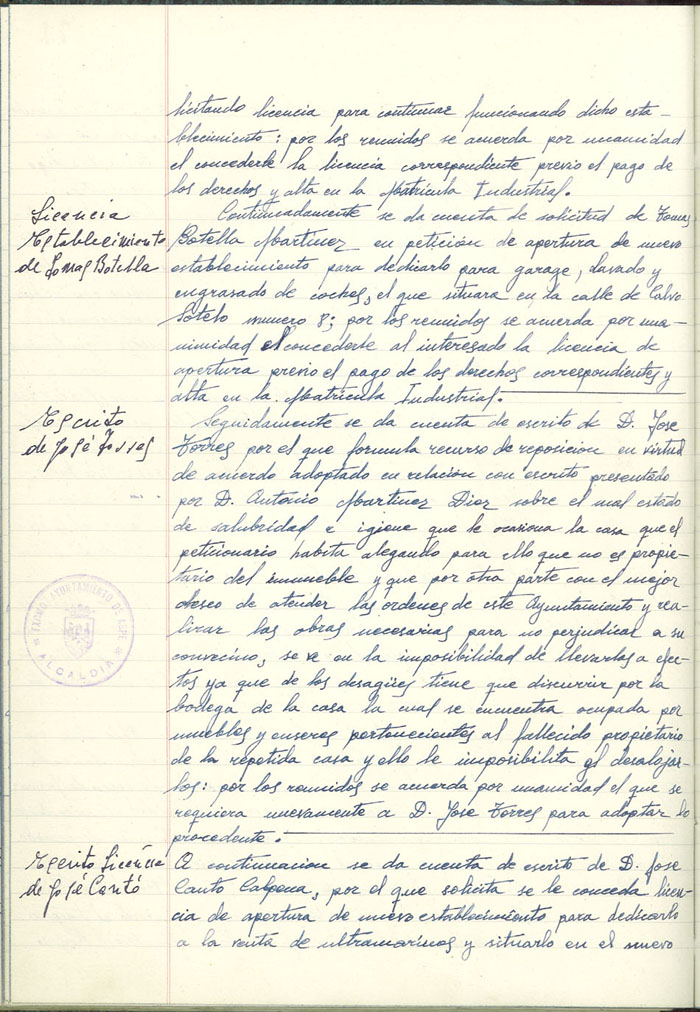 licitando licencia para continuar funcionando dicho esta-
blecimiento; por los reunidos se acuerda por unanimidad
el concederle la licencia correspondiente previo el pago de
los derechos y alta en la Matricula Industrial.
Licencia
Establecimiento
de Tomas Botella
Continuadamente se da cuenta de solicitud de Tomas
Botella Martinez en petición de apertura de nuevo
establecimiento para dedicarlo para garage, lavado y
engrasado de coches, el que situara en la calle de Calvo
Sotelo numero 8; por los reunidos se acuerda por una-
nimidad el concederle al interesado la licencia de
apertura previo el pago de los derechos correspondientes y
alta en la Matricula Industrial.
Escrito
de José Torres
Seguidamente se da cuenta de escrito de D. Jose
Torres por el que formula recurso de reposicion en virtud
de acuerdo adoptado en relación con escrito presentado
por D. Antonio Martinez Diez sobre el mal estado
de salubridad e igiene que le ocasiona la casa que el
peticionario habita alegando para ello que no es propie-
tario del inmueble y que por otra parte con el mejor
deseo de atender las ordenes de este Ayuntamiento y rea-
lizar las obras necesarias para no perjudicar a su
convecino, se ve en la imposibilidad de llevarlas a efec-
tos ya que de los desagües tiene que discurrir por la
bodega de la casa la cual se encuentra ocupada por
muebles y enseres pertenecientes al fallecido propietario
de la repetida casa y ello le imposibilita el desalojar-
los: por los reunidos se acuerda por unanimidad el que se
requiera nuevamente a D. Jose Torres para adoptar lo
procedente.
AYUNTAMIENTO DE ASPE
ALCALDIA
Escrito Licencia
de José Cantó
A continuacion se da cuenta de escrito de D. Jose
Canto Calpena, por el que solicita se le conceda licen-
cia de apertura de nuevo establecimiento para dedicarlo
a la venta de ultramarinos y situarlo en el nuevo